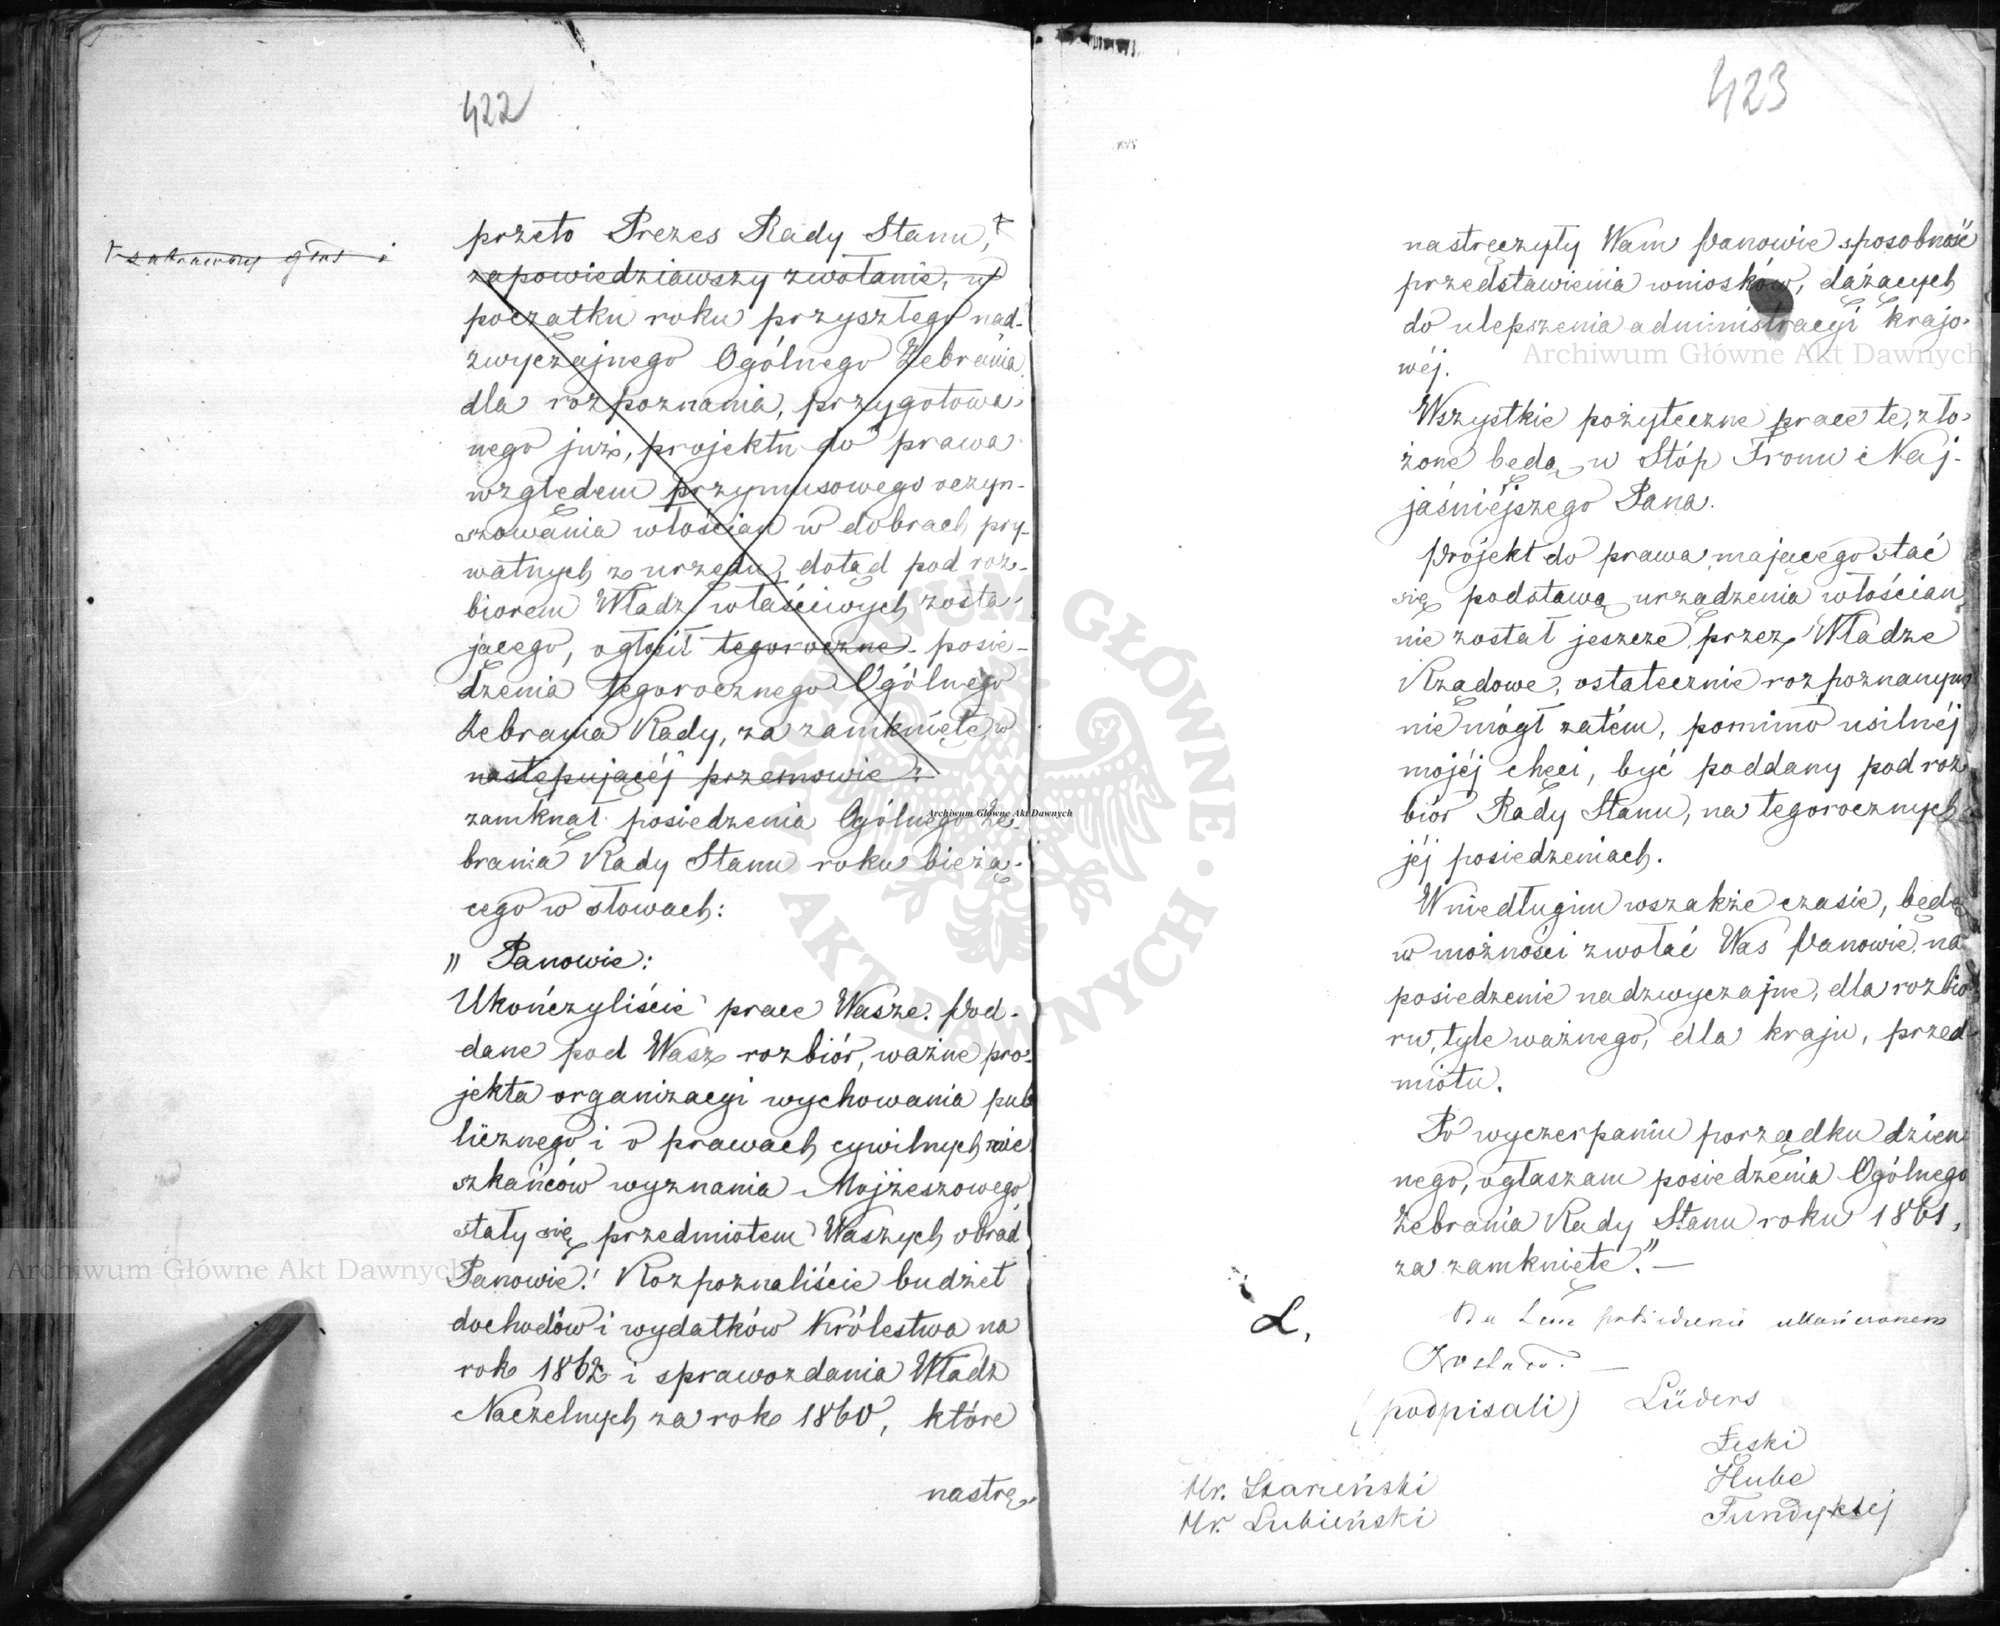 422
przeto Prezes Rady Stanu, †
† zabrawszy głos i
zapowiedziawszy zwołanie, w
początku roku przyszłego nad-
zwyczajnego Ogólnego Zebrania
dla rozpoznania, przygotowa-
nego już, projektu do prawa
względem przymusowego oczyn-
szowania włościan w dobrach pry-
watnych z urzędu, dotąd pod roz-
biorem Władz właściwych zosta-
jącego, ogłosił tegoroczne posie-
dzenia tegorocznego Ogólnego
Zebrania Rady, za zamknięte, w
następującéj przemowie:
zamknął posiedzenia Ogólnego Ze-
brania Rady Stanu roku bieżą-
cego w słowach:
" Panowie:
Ukończyliście prace Wasze. Pod-
dane pod Wasz rozbiór, ważne pro-
jekta organizacyi wychowania pub
licznego i o prawach cywilnych mie
szkańców wyznania Mojżeszowego
stały się przedmiotem Waszych obrad
Panowie! Rozpoznaliście budżet
dochodów i wydatków Królestwa na
rok 1862 i sprawozdania Władz
Naczelnych za rok 1860, które
nastrę-
423
nastręczyły Wam Panowie sposobność
przedstawienia wniosków, dążących
do ulepszenia administracyi krajo-
wéj.
Wszystkie pożyteczne prace te, zło-
żone będą u Stóp Tronu Naj-
jaśniéjszego Pana.
Projekt do prawa mającego stać
się podstawą urządzenia włościan,
nie został jeszcze przez Władze
Rządowe, ostatecznie rozpoznanym
nie mógł zatém, pomimo usilnéj
mojéj chęci, być poddany pod roz
biór Rady Stanu, na tegorocznych
jéj posiedzeniach.
W niedługim wszakże czasie, będę
w możności zwołać Was Panowie na
posiedzenie nadzwyczajne, dla rozbio
ru, tyle ważnego, dla kraju, przed-
miotu.
Po wyczerpaniu porządku dzien
nego, ogłaszam posiedzenia Ogólnego
Zebrania Rady Stanu roku 1861,
za zamknięte." —
L.
Na tem posiedzenie ukończonem
Zostało. —
(podpisali) Lüders
Łęski
Hube
Fundyklej
Mr. Lubieński
Archiwum Główne Akt Dawnych
Archiwum Główne Akt Dawnych
Archiwum Główne Akt Dawnych
ARCHIWUM GŁÓWNE · AKT DAWNYCH ·